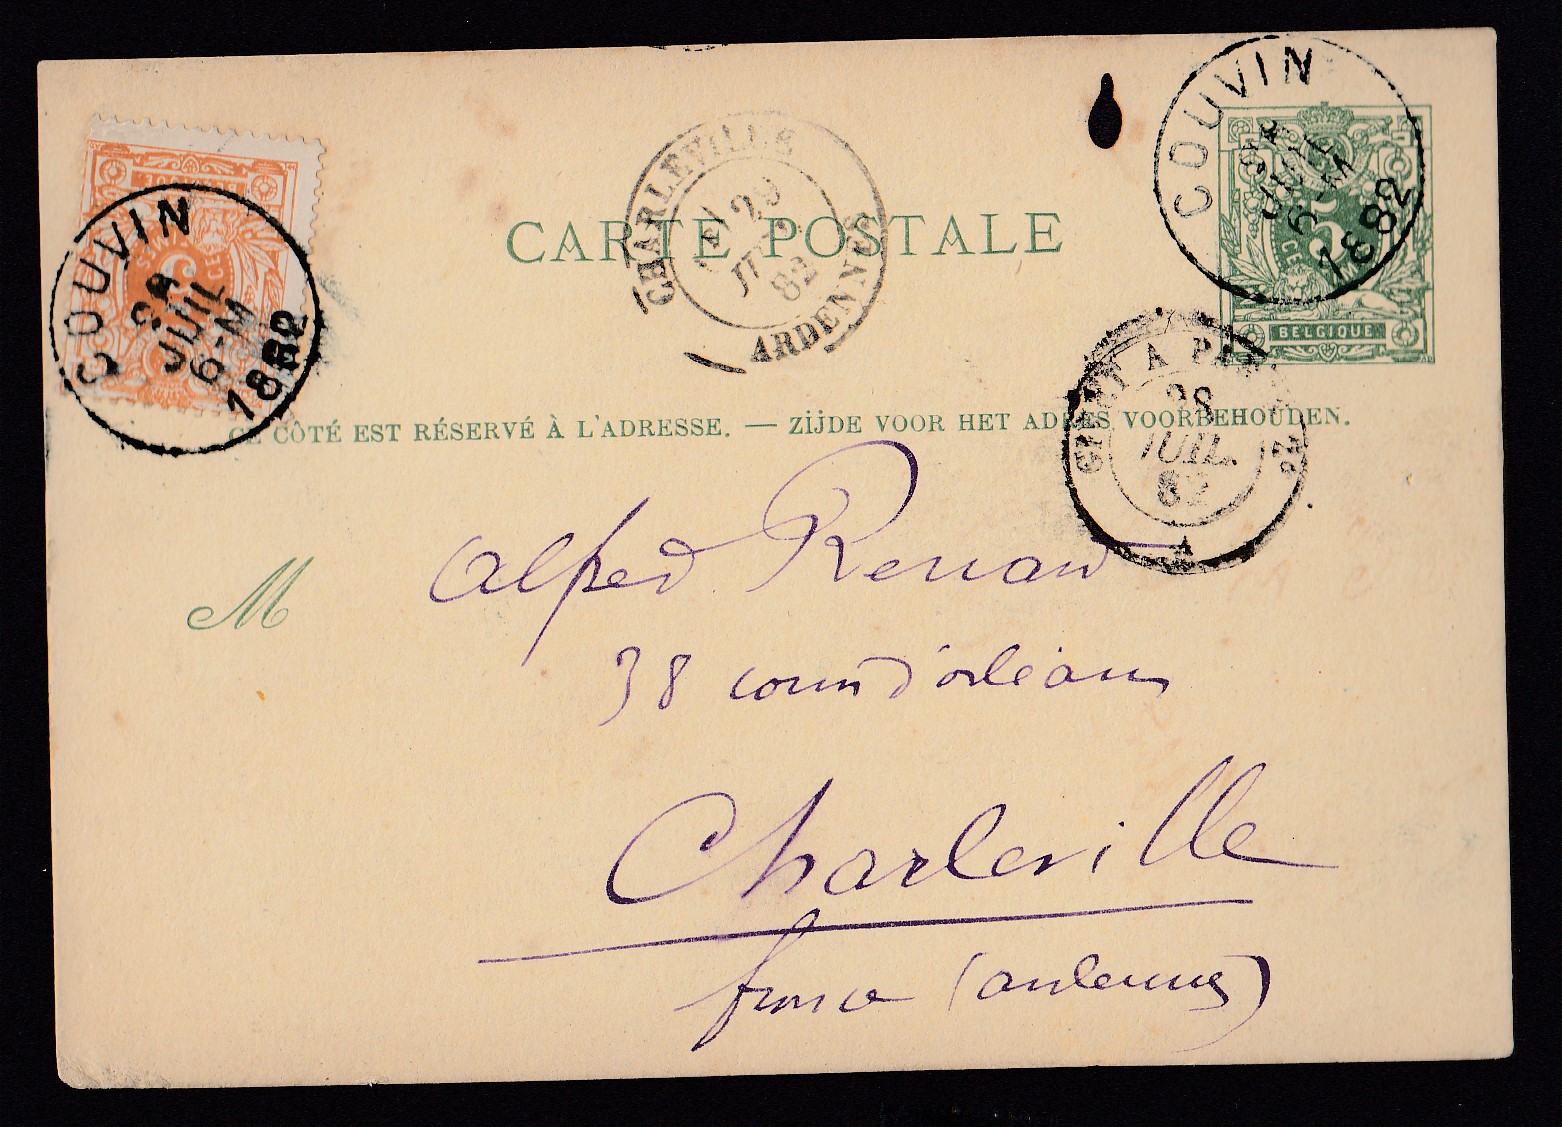 COUVIN
28
JUIL
6-M
1882
BELGIQUE
5
CEN
CARTE POSTALE
CHARLEVILLE
29
82
ARDENNES
COUVIN
28
JUIL
6 M
1882
5
BELGIQUE
GIVET A
28
JUIL.
82
CE CÔTÉ EST RÉSERVÉ À L'ADRESSE. — ZIJDE VOOR HET ADRES VOORBEHOUDEN.
M Alfred Renaw
38 cours d'orléans
Charleville
france (ardennes)